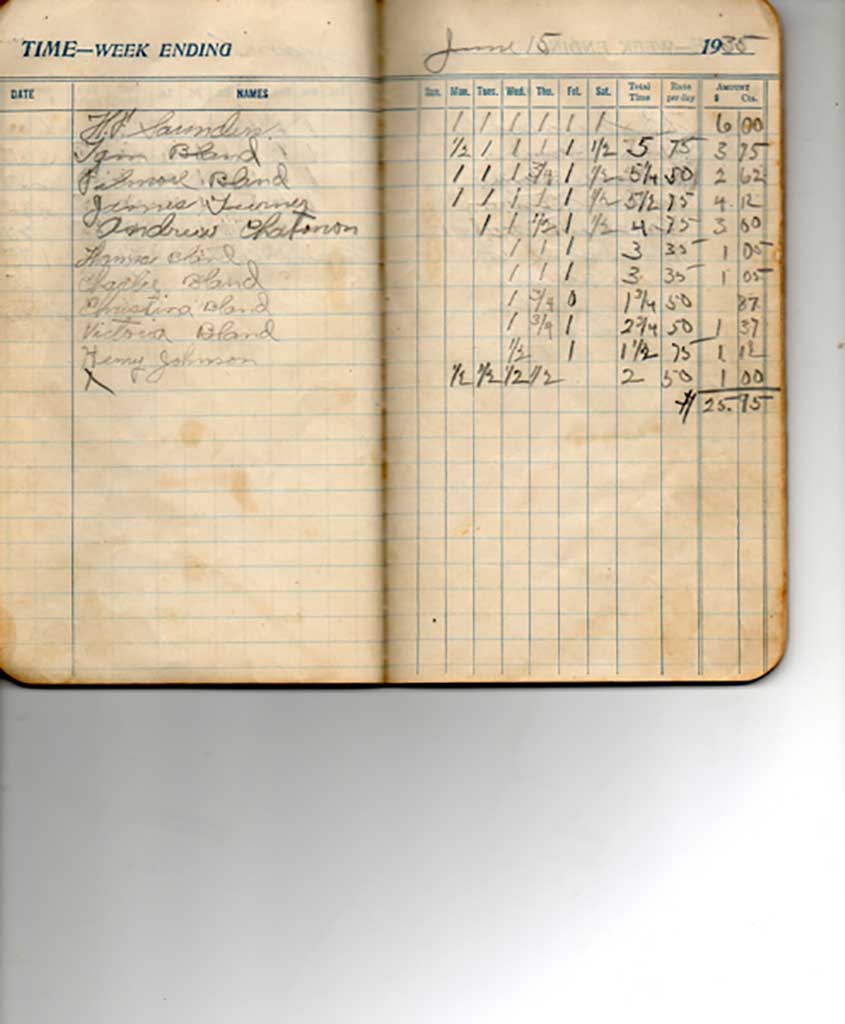 TIME—WEEK ENDING June 15 1935
DATE NAMES Sun. Mon. Tues. Wed. Thu. Fri. Sat. Total Time Rate per day Amount $ Cts.
H.F. Saunders 1 1 1 1 1 1 6 00
Sam Bland 1/2 1 1 1 1 1/2 5 75 3 75
Filmore Bland 1 1 1 3/4 1 1/2 5 1/4 50 2 62
James Turner 1 1 1 1 1 1/2 5 1/2 75 4 12
Andrew Chatman 1 1 1/2 1 1/2 4 75 3 00
Bland 1 1 1 3 35 1 05
Charlie Bland 1 1 1 3 35 1 05
Christina Bland 1 3/4 0 1 3/4 50 87
Victoria Bland 1 3/4 1 2 3/4 50 1 37
Henry Johnson 1/2 1 1 1/2 75 1 12
X 1/2 1/2 1/2 1/2 2 50 1 00
$ 25.95